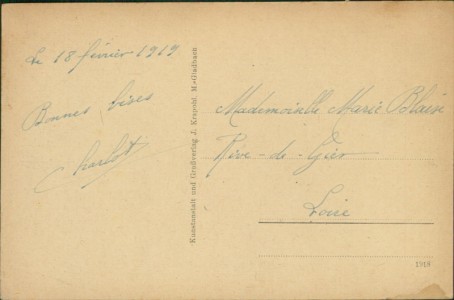 Le 18 février 1919
Bonnes bises
Charlot
Kunstanstalt und Großverlag J. Krapohl, M.-Gladbach
Mademoiselle Marie Blaise
Rive-de-Gier
Loire
1918